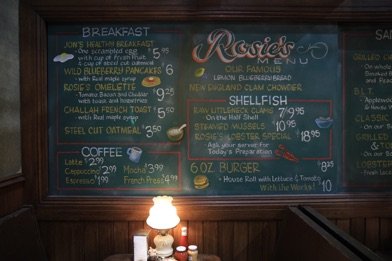 BREAKFAST
JON'S HEALTHY BREAKFAST
One scrambled egg
with cup of Fresh Fruit
& cup of steel cut oatmeal
$5.95
WILD BLUEBERRY PANCAKES $6
- with Real maple syrup
ROSIE'S OMELETTE
- Tomato, Bacon and Cheddar
with toast and homefries
$9.25
CHALLAH FRENCH TOAST $5.50
- with Real maple syrup
STEEL CUT OATMEAL $3.50
COFFEE
Latte $2.99
Cappuccino $2.99 Mocha $3.99
Espresso $1.99 French Press $4.99
Rosie's
MENU
OUR FAMOUS
LEMON BLUEBERRY BREAD
NEW ENGLAND CLAM CHOWDER
SHELLFISH
RAW LITTLENECK CLAMS
On the Half Shell
STEAMED MUSSELS 10.95
ROSIE'S LOBSTER SPECIAL $18.95
Ask your server for
Today's Preparation
6 OZ. BURGER $8.25
- House Roll with Lettuce & Tomato
With the Works! $10
SA
GRILLED
B.L.T.
CLASSIC
GRILLED
& TO
LOBSTER